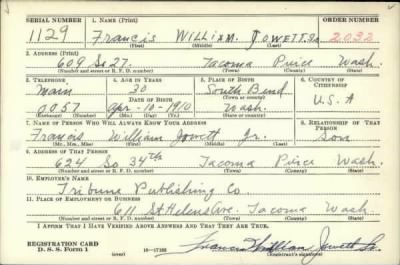 SERIAL NUMBER 1. NAME (Print) ORDER NUMBER
1129 Francis William Jowett Sr 2032
(First) (Middle) (Last)
2. ADDRESS (Print)
609 So 27. Tacoma Pirce Wash.
(Number and street or R. F. D. number) (Town) (County) (State)
3. TELEPHONE 4. AGE IN YEARS 5. PLACE OF BIRTH 6. COUNTRY OF CITIZENSHIP
Main 30 South Bend
DATE OF BIRTH (Town or county)
0057 Apr-10-1910 Wash. U.S.A
(Exchange) (Number) (Mo.) (Day) (Yr.) (State or country)
7. NAME OF PERSON WHO WILL ALWAYS KNOW YOUR ADDRESS 8. RELATIONSHIP OF THAT PERSON
Francis William Jowett Jr. Son
(Mr., Mrs., Miss) (First) (Middle) (Last)
9. ADDRESS OF THAT PERSON
624 So 34th Tacoma Pirce Wash.
(Number and street or R. F. D. number) (Town) (County) (State)
10. EMPLOYER'S NAME
Tribune Publishing Co.
11. PLACE OF EMPLOYMENT OR BUSINESS
611 St Helens Ave. Tacoma Wash.
(Number and street or R. F. D. number) (Town) (County) (State)
I AFFIRM THAT I HAVE VERIFIED ABOVE ANSWERS AND THAT THEY ARE TRUE.
REGISTRATION CARD
D. S. S. Form 1 16—17105 Francis William Jowett Sr.
(Registrant's signature)